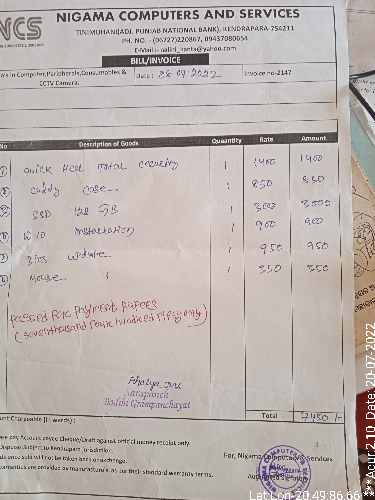 NCS
NIGAMA COMPUTERS AND SERVICES
TINIMUHANI(ADJ. PUNJAB NATIONAL BANK), KENDRAPARA-754211
PH. NO. - (06727)220867, 09437080654
E-Mail :- nalini_kanta@yahoo.com
BILL/INVOICE
als in Computer,Peripherals,Consumables &
CCTV Camera.
Date :
07-2022
Invoice no-2147
No Description of Goods Quantity Rate Amount
1 Quick Heal Total Security 1 1400 1400
Caddy Case 1 850 850
SSD 128 GB 1 3000 3000
W10 Installation 1 900 900
Bios update 1 950 950
6 Mouse 1 350 350
Passed for Payment Rupees
(Seventhousand four hundred fifty only)
Sarapanch
Badihi Grampanchayat
Total 7450/-
unt Chargeable (in words) :
ase pay Account payee Cheque/Draft against official money receipt only.
Disputes Subject to Kendrapara Jurisdiction.
ds once sold will not be taken back or exchange.
warrantus are provided by manufacturers, as per their standard warranty terms.
For, Nigama Computers & Services
Authorised Signatory
Lat Lon-20.49,86.66
**Acur:2.10 Date:20-07-2022